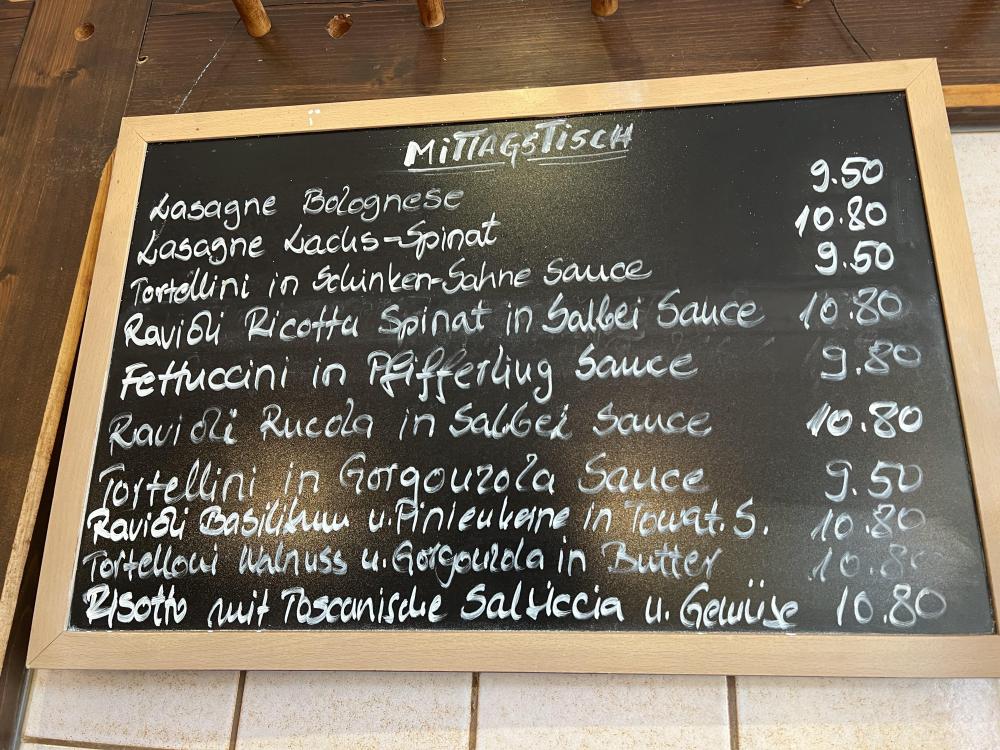 MITTAGSTISCH
Lasagne Bolognese 9.50
Lasagne Lachs-Spinat 10.80
Tortellini in Schinken-Sahne Sauce 9.50
Ravioli Ricotta Spinat in Salbei Sauce 10.80
Fettuccini in Pfifferling Sauce 9.80
Ravioli Rucola in Salbei Sauce 10.80
Tortellini in Gorgonzola Sauce 9.50
Ravioli Basilikum u. Pinienkerne in Tomat. S. 10.80
Tortelloni Walnuss u. Gorgonzola in Butter 10.80
Risotto mit Toscanische Salsiccia u. Gemüse 10.80